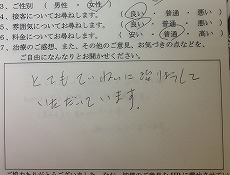 3、ご性別 ( 男性 ・ 女性 )
4、接客についてお尋ねします。 ( 良い ・ 普通 ・ 悪い )
5、雰囲気についてお尋ねします。 ( 良い ・ 普通 ・ 悪い )
6、料金についてお尋ねします。 ( 安い ・ 普通 ・ 高い )
7、治療のご感想、また、その他のご意見、お気づきの点などを、
ご自由になんなりとお聞かせください。
とてもていねいに治りょうして
いただいています。